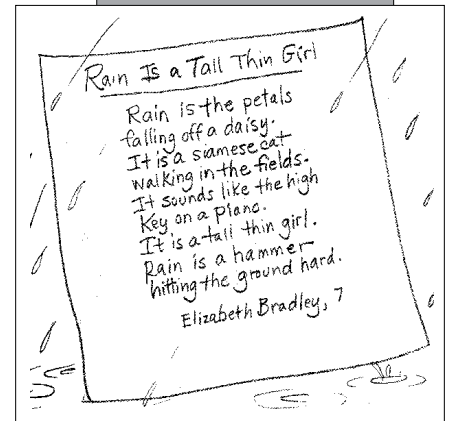 Rain Is a Tall Thin Girl
Rain is the petals
falling off a daisy.
It is a siamese cat
walking in the fields.
It sounds like the high
Key on a Piano.
It is a tall thin girl.
Rain is a hammer
hitting the ground hard.
Elizabeth Bradley, 7